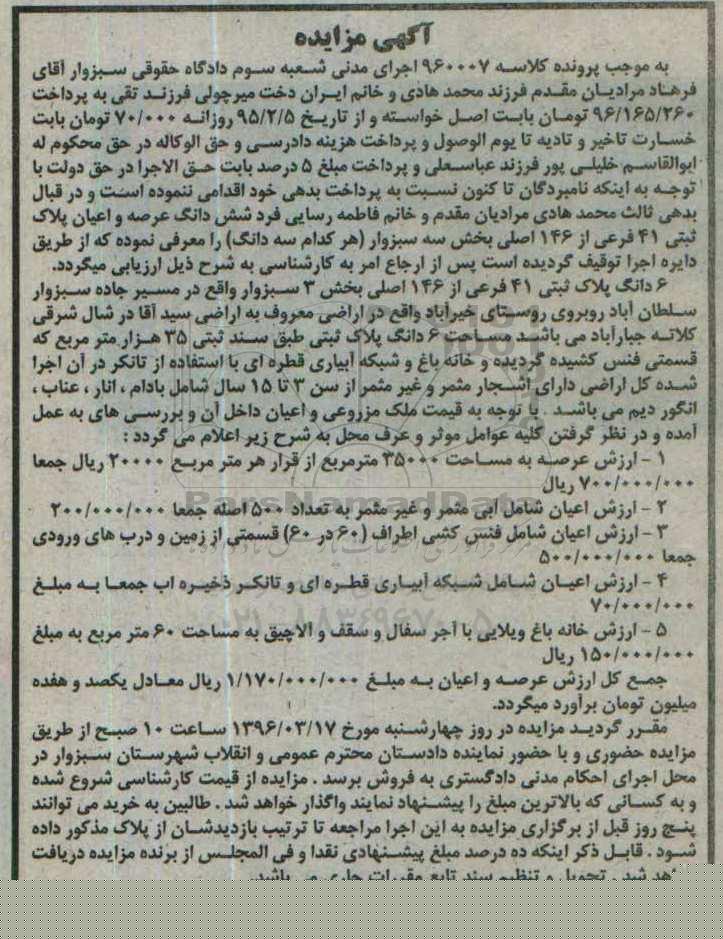 آگهی مزایده
به موجب پرونده کلاسه ۹۶۰۰۰۷ اجرای مدنی شعبه سوم دادگاه حقوقی سبزوار آقای
فرهاد مرادیان مقدم فرزند محمد هادی و خانم ایران دخت میرچولی فرزند تقی به پرداخت
۹۶/۱۶۵/۲۶۰ تومان بابت اصل خواسته و از تاریخ ۹۵/۲/۵ روزانه ۷۰/۰۰۰ تومان بابت
خسارت تاخیر و تادیه تا یوم الوصول و پرداخت هزینه دادرسی و حق الوکاله در حق محکوم له
ابوالقاسم خلیلی پور فرزند عباسعلی و پرداخت مبلغ ۵ درصد بابت حق الاجرا در حق دولت با
توجه به اینکه نامبردگان تا کنون نسبت به پرداخت بدهی خود اقدامی ننموده است و در قبال
بدهی ثالث محمد هادی مرادیان مقدم و خانم فاطمه رسایی فرد شش دانگ عرصه و اعیان پلاک
ثبتی ۴۱ فرعی از ۱۴۶ اصلی بخش سه سبزوار (هر کدام سه دانگ) را معرفی نموده که از طریق
دایره اجرا توقیف گردیده است پس از ارجاع امر به کارشناسی به شرح ذیل ارزیابی میگردد.
۶ دانگ پلاک ثبتی ۴۱ فرعی از ۱۴۶ اصلی بخش ۳ سبزوار واقع در مسیر جاده سبزوار
سلطان آباد روبروی روستای خیرآباد واقع در اراضی معروف به اراضی سید آقا در شال شرقی
کلاته جبارآباد می باشد مساحت ۶ دانگ پلاک ثبتی طبق سند ثبتی ۳۵ هزار متر مربع که
قسمتی فنس کشیده گردیده و خانه باغ و شبکه آبیاری قطره ای با استفاده از تانکر در آن اجرا
شده کل اراضی دارای اشجار مثمر و غیر مثمر از سن ۳ تا ۱۵ سال شامل بادام ، انار ، عناب ،
انگور دیم می باشد . با توجه به قیمت ملک مزروعی و اعیان داخل آن و بررسی های به عمل
آمده و در نظر گرفتن کلیه عوامل موثر و عرف محل به شرح زیر اعلام می گردد :
۱ - ارزش عرصه به مساحت ۳۵۰۰۰ مترمربع از قرار هر متر مربع ۲۰۰۰۰ ریال جمعا
۷۰۰/۰۰۰/۰۰۰ ریال
ParsNamadData
۲ - ارزش اعیان شامل آبی مثمر و غیر مثمر به تعداد ۵۰۰ اصله جمعا ۲۰۰/۰۰۰/۰۰۰
۳ - ارزش اعیان شامل فنس کشی اطراف (۶۰ در ۶۰) قسمتی از زمین و درب های ورودی
جمعا ۵۰۰/۰۰۰/۰۰۰
۴ - ارزش اعیان شامل شبکه آبیاری قطره ای و تانکر ذخیره اب جمعا به مبلغ
۷۰/۰۰۰/۰۰۰
۵ - ارزش خانه باغ ویلایی با آجر سفال و سقف و آلاچیق به مساحت ۶۰ متر مربع به مبلغ
۱۵۰/۰۰۰/۰۰۰ ریال
جمع کل ارزش عرصه و اعیان به مبلغ ۱/۱۷۰/۰۰۰/۰۰۰ ریال معادل یکصد و هفده
میلیون تومان برآورد میگردد.
مقرر گردید مزایده در روز چهارشنبه مورخ ۱۳۹۶/۰۳/۱۷ ساعت ۱۰ صبح از طریق
مزایده حضوری و با حضور نماینده دادستان محترم عمومی و انقلاب شهرستان سبزوار در
محل اجرای احکام مدنی دادگستری به فروش برسد . مزایده از قیمت کارشناسی شروع شده
و به کسانی که بالاترین مبلغ را پیشنهاد نمایند واگذار خواهد شد . طالبین به خرید می توانند
پنج روز قبل از برگزاری مزایده به این اجرا مراجعه تا ترتیب بازدیدشان از پلاک مذکور داده
شود . قابل ذکر اینکه ده درصد مبلغ پیشنهادی نقدا و فی المجلس از برنده مزایده دریافت